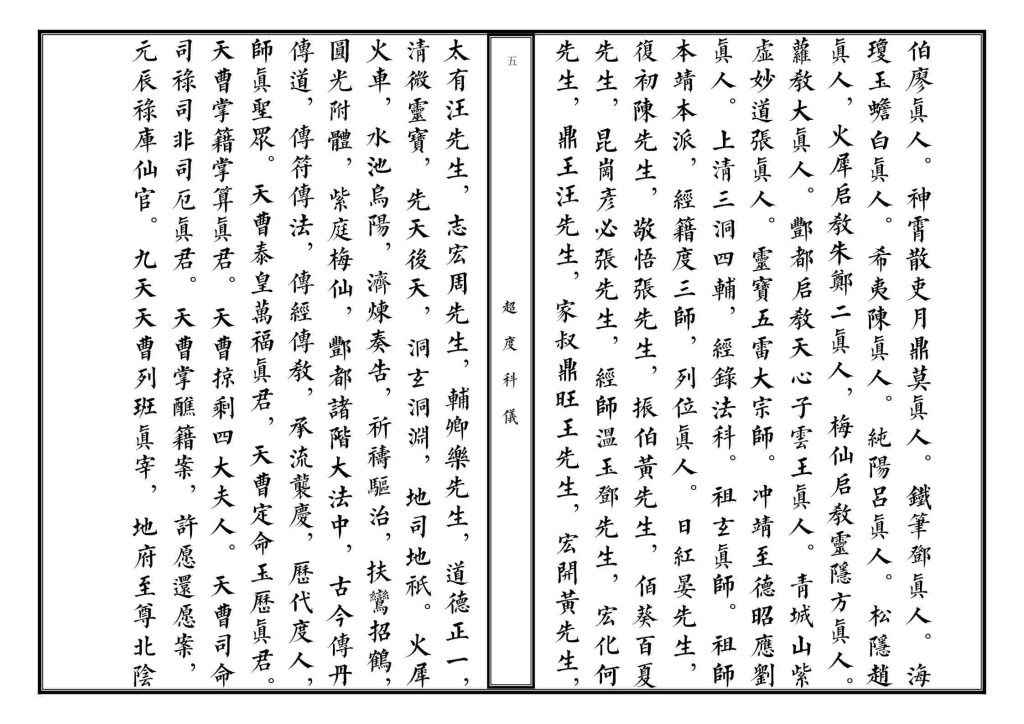 伯廖眞人。神霄散吏月鼎莫眞人。鐵筆鄧眞人。海
瓊玉蟾白眞人。希夷陳眞人。純陽呂眞人。松隱趙
眞人，火犀启教朱鄭二眞人，梅仙启教靈隱方眞人。
蘿教大眞人。酆都启教天心子雲王眞人。青城山紫
虛妙道張眞人。靈寶五雷大宗師。冲靖至德昭應劉
眞人。上清三洞四輔，經錄法科。祖玄眞師。祖師
本靖本派，經籍度三師，列位眞人。日紅晏先生，
復初陳先生，敬悟張先生，振伯黃先生，佰葵百夏
先生，昆崗彥必張先生，經師溫玉鄧先生，宏化何
先生，鼎王汪先生，家叔鼎旺王先生，宏開黃先生，
五
超度科儀
太有汪先生，志宏周先生，輔卿樂先生，道德正一，
清微靈寶，先天後天，洞玄洞淵，地司地祇。火犀
火車，水池烏陽，濟煉奏告，祈禱驅治，扶鸞招鶴，
圓光附體，紫庭梅仙，酆都諸階大法中，古今傳丹
傳道，傳符傳法，傳經傳教，承流襲慶，歷代度人，
師眞聖眾。天曹泰皇萬福眞君，天曹定命玉歷眞君。
天曹掌籍掌算眞君。天曹掠剩四大夫人。天曹司命
司祿司非司厄眞君。天曹掌醮籍案，許愿還愿案，
元辰祿庫仙官。九天天曹列班眞宰，地府至尊北陰